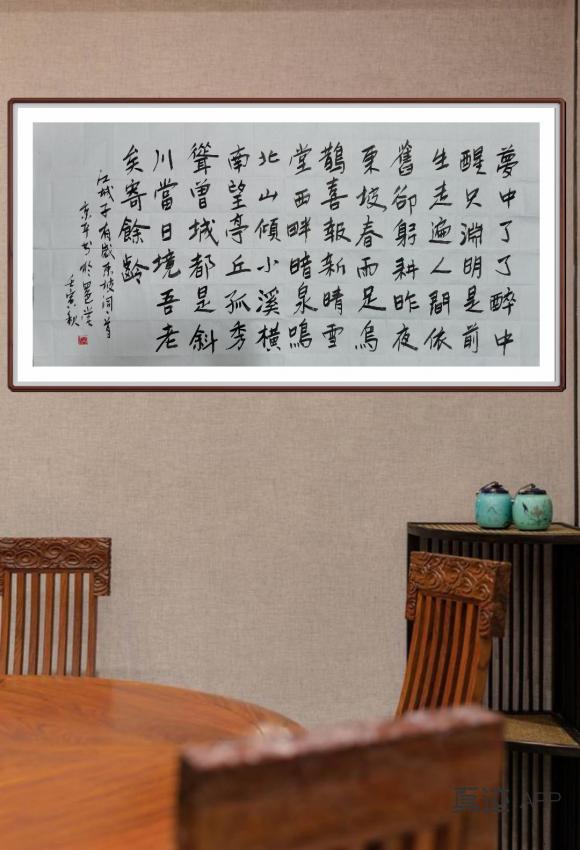 夢中了了醉中
醒只淵明是前
生走遍人間依
舊卻躬耕昨夜
東坡春雨足烏
鵲喜報新晴雪
堂西畔暗泉鳴
北山傾小溪橫
南望亭丘孤秀
聳曾城都是斜
川當日境吾老
矣寄餘齡
江城子有感東坡詞首
书於
壬寅秋
真迹 APP